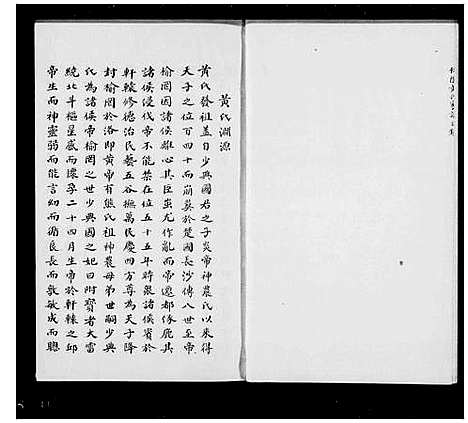 黃氏淵源
黃氏發祖蓋自少典國君之子炎帝神農氏以來得
天子之位百四十而崩葬於楚國長沙傳八世至帝
榆罔因諸侯離心其臣蚩尤作亂而帝遷都涿鹿其
諸侯侵伐帝不能禁在位五十五年時衆諸侯賓於
軒轅修德治民藝五谷撫萬民慶四方尊為天子降
封榆罔於洛即黃帝有熊氏祖神農母弟世嗣少典
氏為諸侯帝榆罔之世少典國之妃曰附寶者大雷
繞北斗樞星感而懷孕二十四月生帝於軒轅之邱
帝生而神靈弱而能言幼而循良長而敦敏成而聰